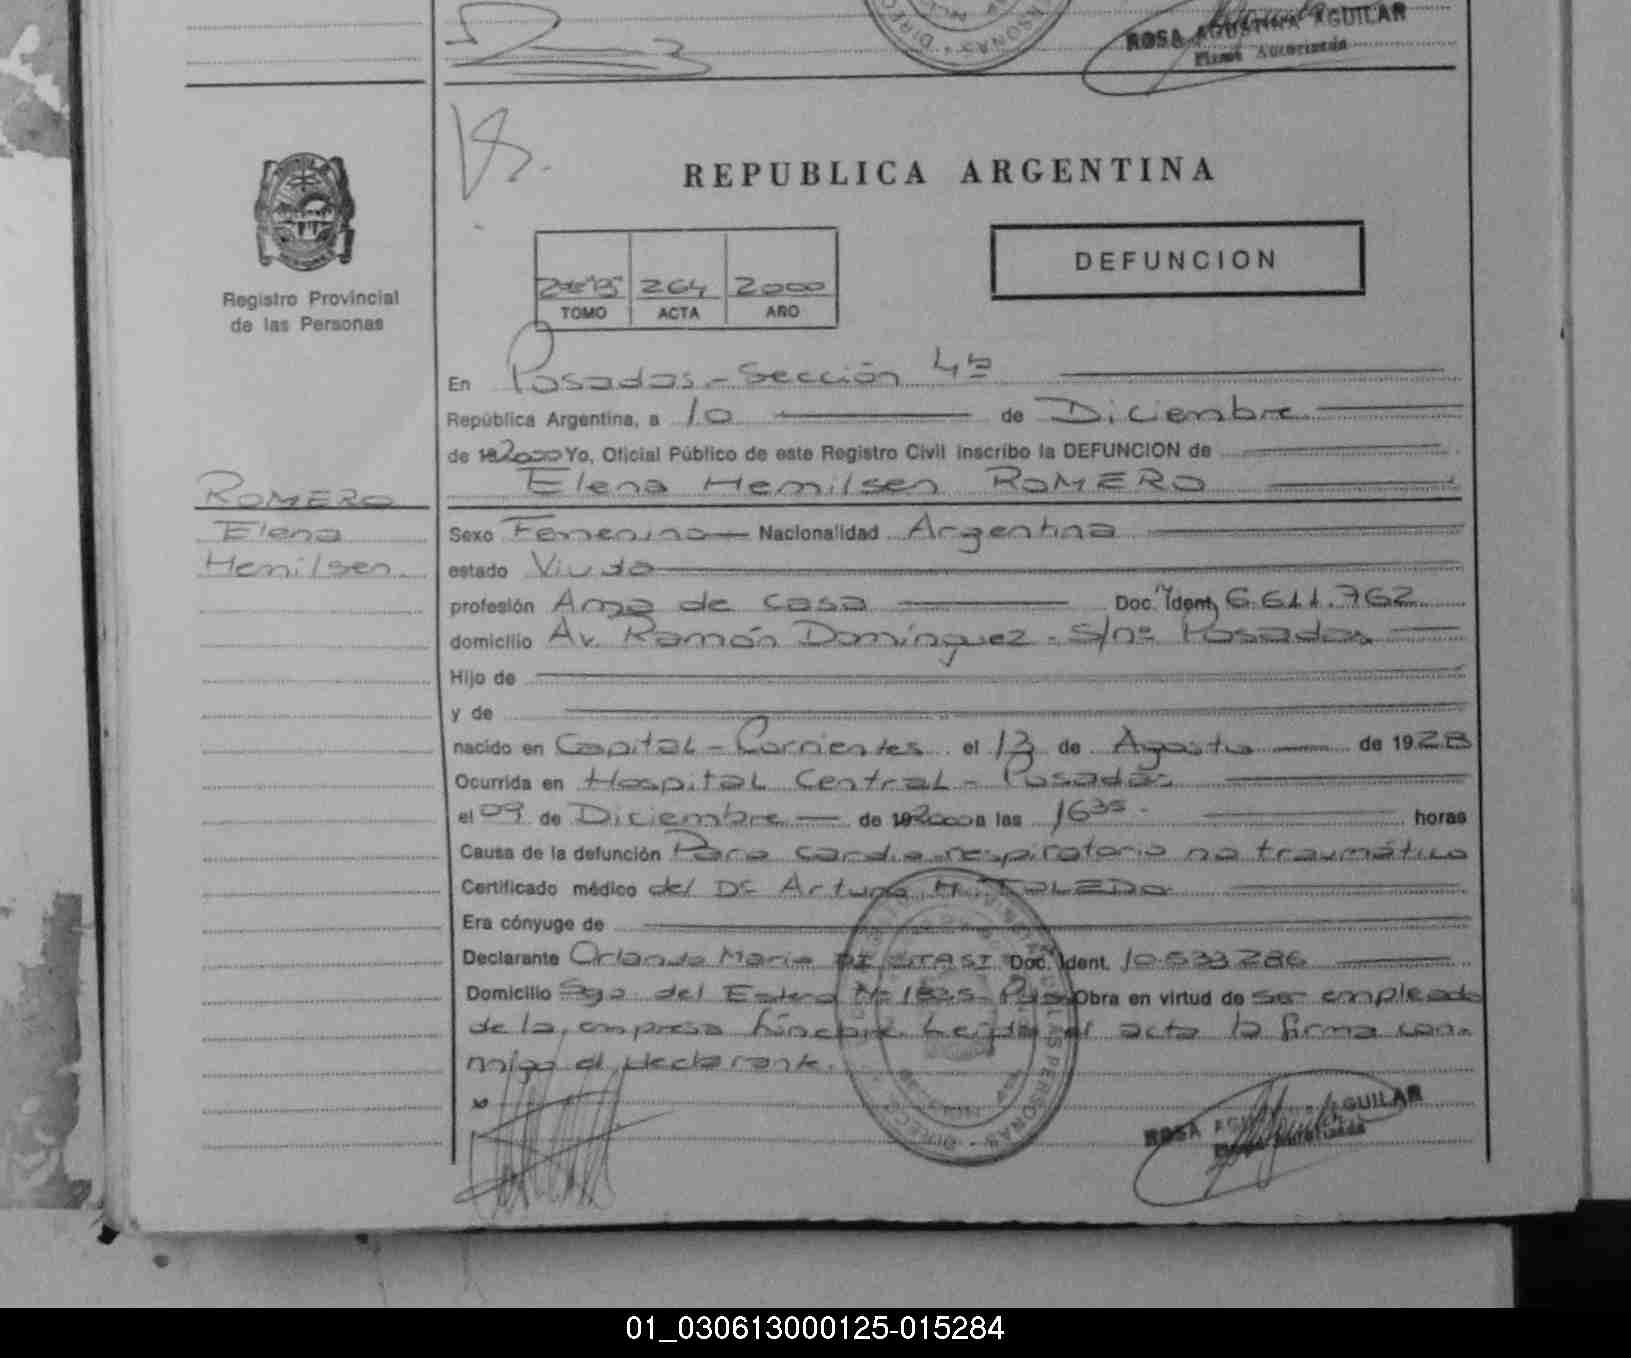 ROSA AGUSTINA AGUILAR
Firma Autorizada
REPUBLICA ARGENTINA
DEFUNCION
264 2000
TOMO ACTA AÑO
Registro Provincial
de las Personas
En Posadas - Sección 4ª
República Argentina, a 10 de Diciembre
de 2000 Yo, Oficial Público de este Registro Civil inscribo la DEFUNCION de
Elena Hemilsen ROMERO
ROMERO
Elena
Hemilsen
Sexo Femenino Nacionalidad Argentina
estado Viuda
profesión Ama de casa Doc. Ident. 6.611.762
domicilio Av. Ramón Domínguez - S/nº Posadas
Hijo de
y de
nacido en Capital - Corrientes el 13 de Agosto de 1928
Ocurrida en Hospital Central - Posadas
el 09 de Diciembre de 2000 a las 16 35 horas
Causa de la defunción Paro cardio-respiratorio no traumático
Certificado médico del Dr Arturo H. TOLEDO
Era cónyuge de
Declarante Orlando Mario DI STASI Doc. Ident. 10.533.286
Domicilio Sgo. del Estero Nº 1825 - Obra en virtud de ser empleado
de la empresa fúnebre. Leída el acta la firma con-
migo el declarante.
ROSA AGUILAR
Firma Autorizada
01_030613000125-015284